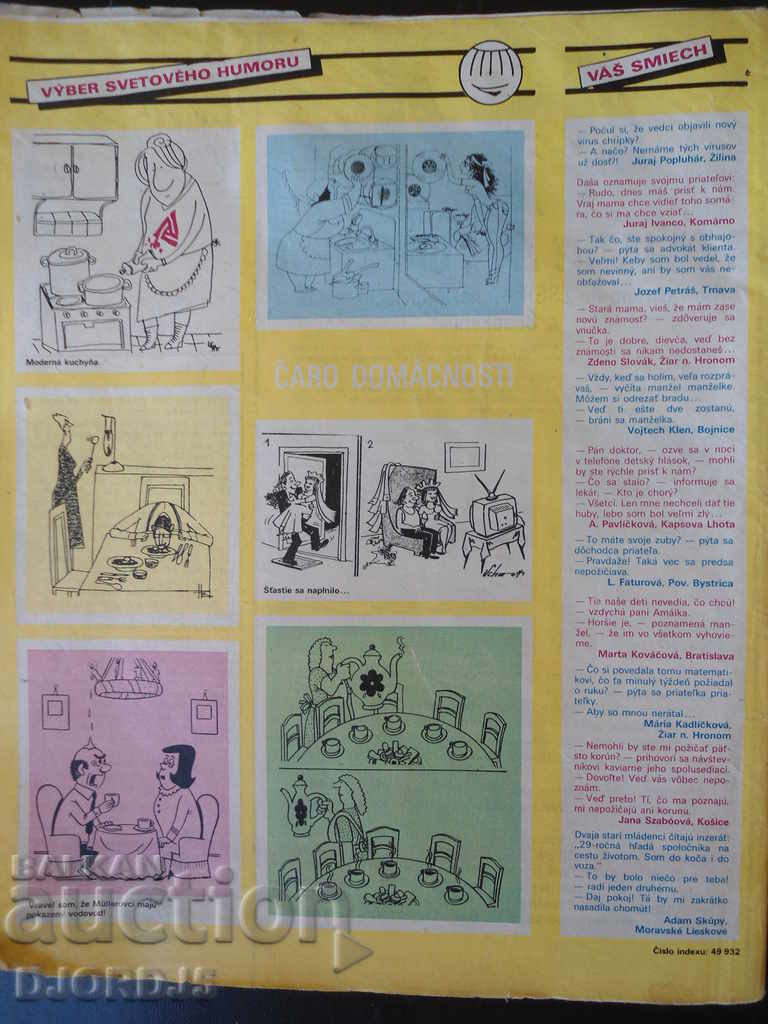 VÝBER SVETOVÉHO HUMORU
VÁŠ SMIECH
Moderná kuchyňa.
ČARO DOMÁCNOSTI
1
2
Šťastie sa naplnilo...
Vravel som, že Müllerovci majú
pokazený vodovod!
— Počul si, že vedci objavili nový
vírus chrípky?
— A načo? Nemáme tých vírusov
už dosť?! Juraj Popluhár, Žilina
Daša oznamuje svojmu priateľovi:
— Rudo, dnes máš prísť k nám.
Vraj mama chce vidieť toho somá-
ra, čo si ma chce vziať...
Juraj Ivanco, Komárno
— Tak čo, ste spokojný s obhajo-
bou? — pýta sa advokát klienta.
— Veľmi! Keby som bol vedel, že
som nevinný, ani by som vás ne-
obťažoval...
Jozef Petráš, Trnava
— Stará mama, vieš, že mám zase
novú známosť? — zdôveruje sa
vnučka.
— To je dobre, dievča, veď bez
známosti sa nikam nedostaneš...
Zdeno Slovák, Žiar n. Hronom
— Vždy, keď sa holím, veľa rozprá-
vaš, — vyčíta manžel manželke.
Môžem si odrezať bradu...
— Veď ti ešte dve zostanú,
— bráni sa manželka.
Vojtech Klen, Bojnice
— Pán doktor, — ozve sa v noci
v telefóne detský hlások, — mohli
by ste rýchle prísť k nám?
— Čo sa stalo? — informuje sa
lekár. — Kto je chorý?
— Všetci. Len mne nechceli dať tie
huby, lebo som bol veľmi zlý...
A. Pavlíčková, Kapsova Lhota
— To máte svoje zuby? — pýta sa
dôchodca priateľa.
— Pravdaže! Taká vec sa predsa
nepožičiava.
L. Faturová, Pov. Bystrica
— Tie naše deti nevedia, čo chcú!
— vzdychá pani Amálka.
— Horšie je, — poznamená man-
žel, — že im vo všetkom vyhovie-
me.
Marta Kováčová, Bratislava
— Čo si povedala tomu matemati-
kovi, čo ťa minulý týždeň požiadal
o ruku? — pýta sa priateľka pria-
teľky.
— Aby so mnou nerátal...
Mária Kadlíčková,
Žiar n. Hronom
— Nemohli by ste mi požičať päť-
sto korún? — prihovorí sa návštev-
níkovi kaviarne jeho spolusediaci.
— Dovoľte! Veď vás vôbec nepo-
znám.
— Veď preto! Tí, čo ma poznajú,
mi nepožičajú ani korunu.
Jana Szabóová, Košice
Dvaja starí mládenci čítajú inzerát:
„29-ročná hľadá spoločníka na
cestu životom. Som do koča i do
voza."
— To by bolo niečo pre teba!
— radí jeden druhému.
— Daj pokoj! Tá by mi zakrátko
nasadila chomút!
Adam Skúpy,
Moravské Lieskové
Číslo indexu: 49 932
BALKAN
auction
DJORDJ5